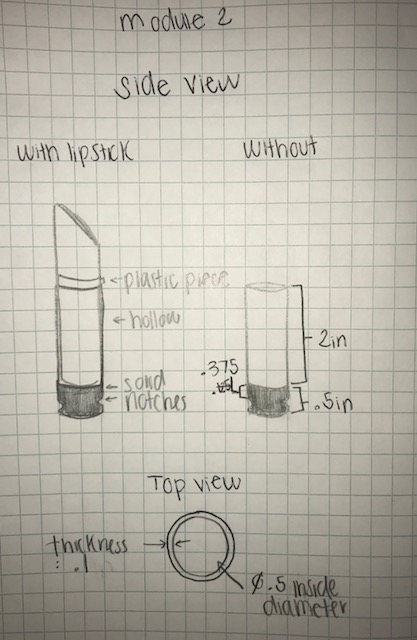 module 2
side view
with lipstick
without
plastic piece
hollow
2in
.375
solid
notches
.5in
Top view
thickness
: .1
Ø.5 inside
diameter